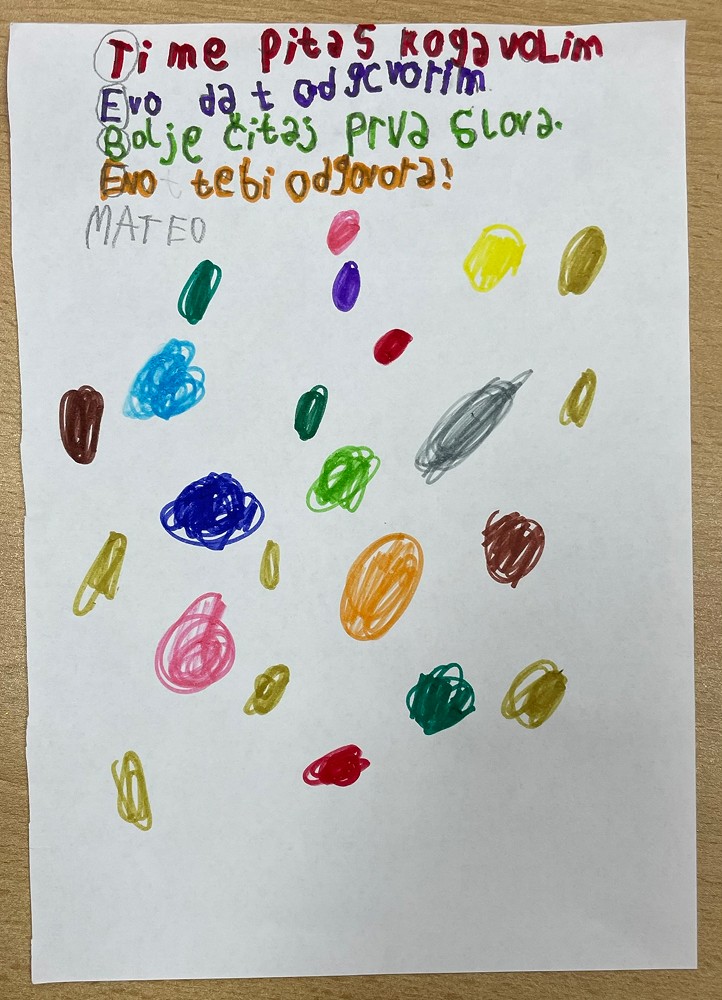 Ti me pitaš koga voLim
Evo da t odgovorim
Bolje čitaj prva slova.
Evo tebi odgovora!
MATEO